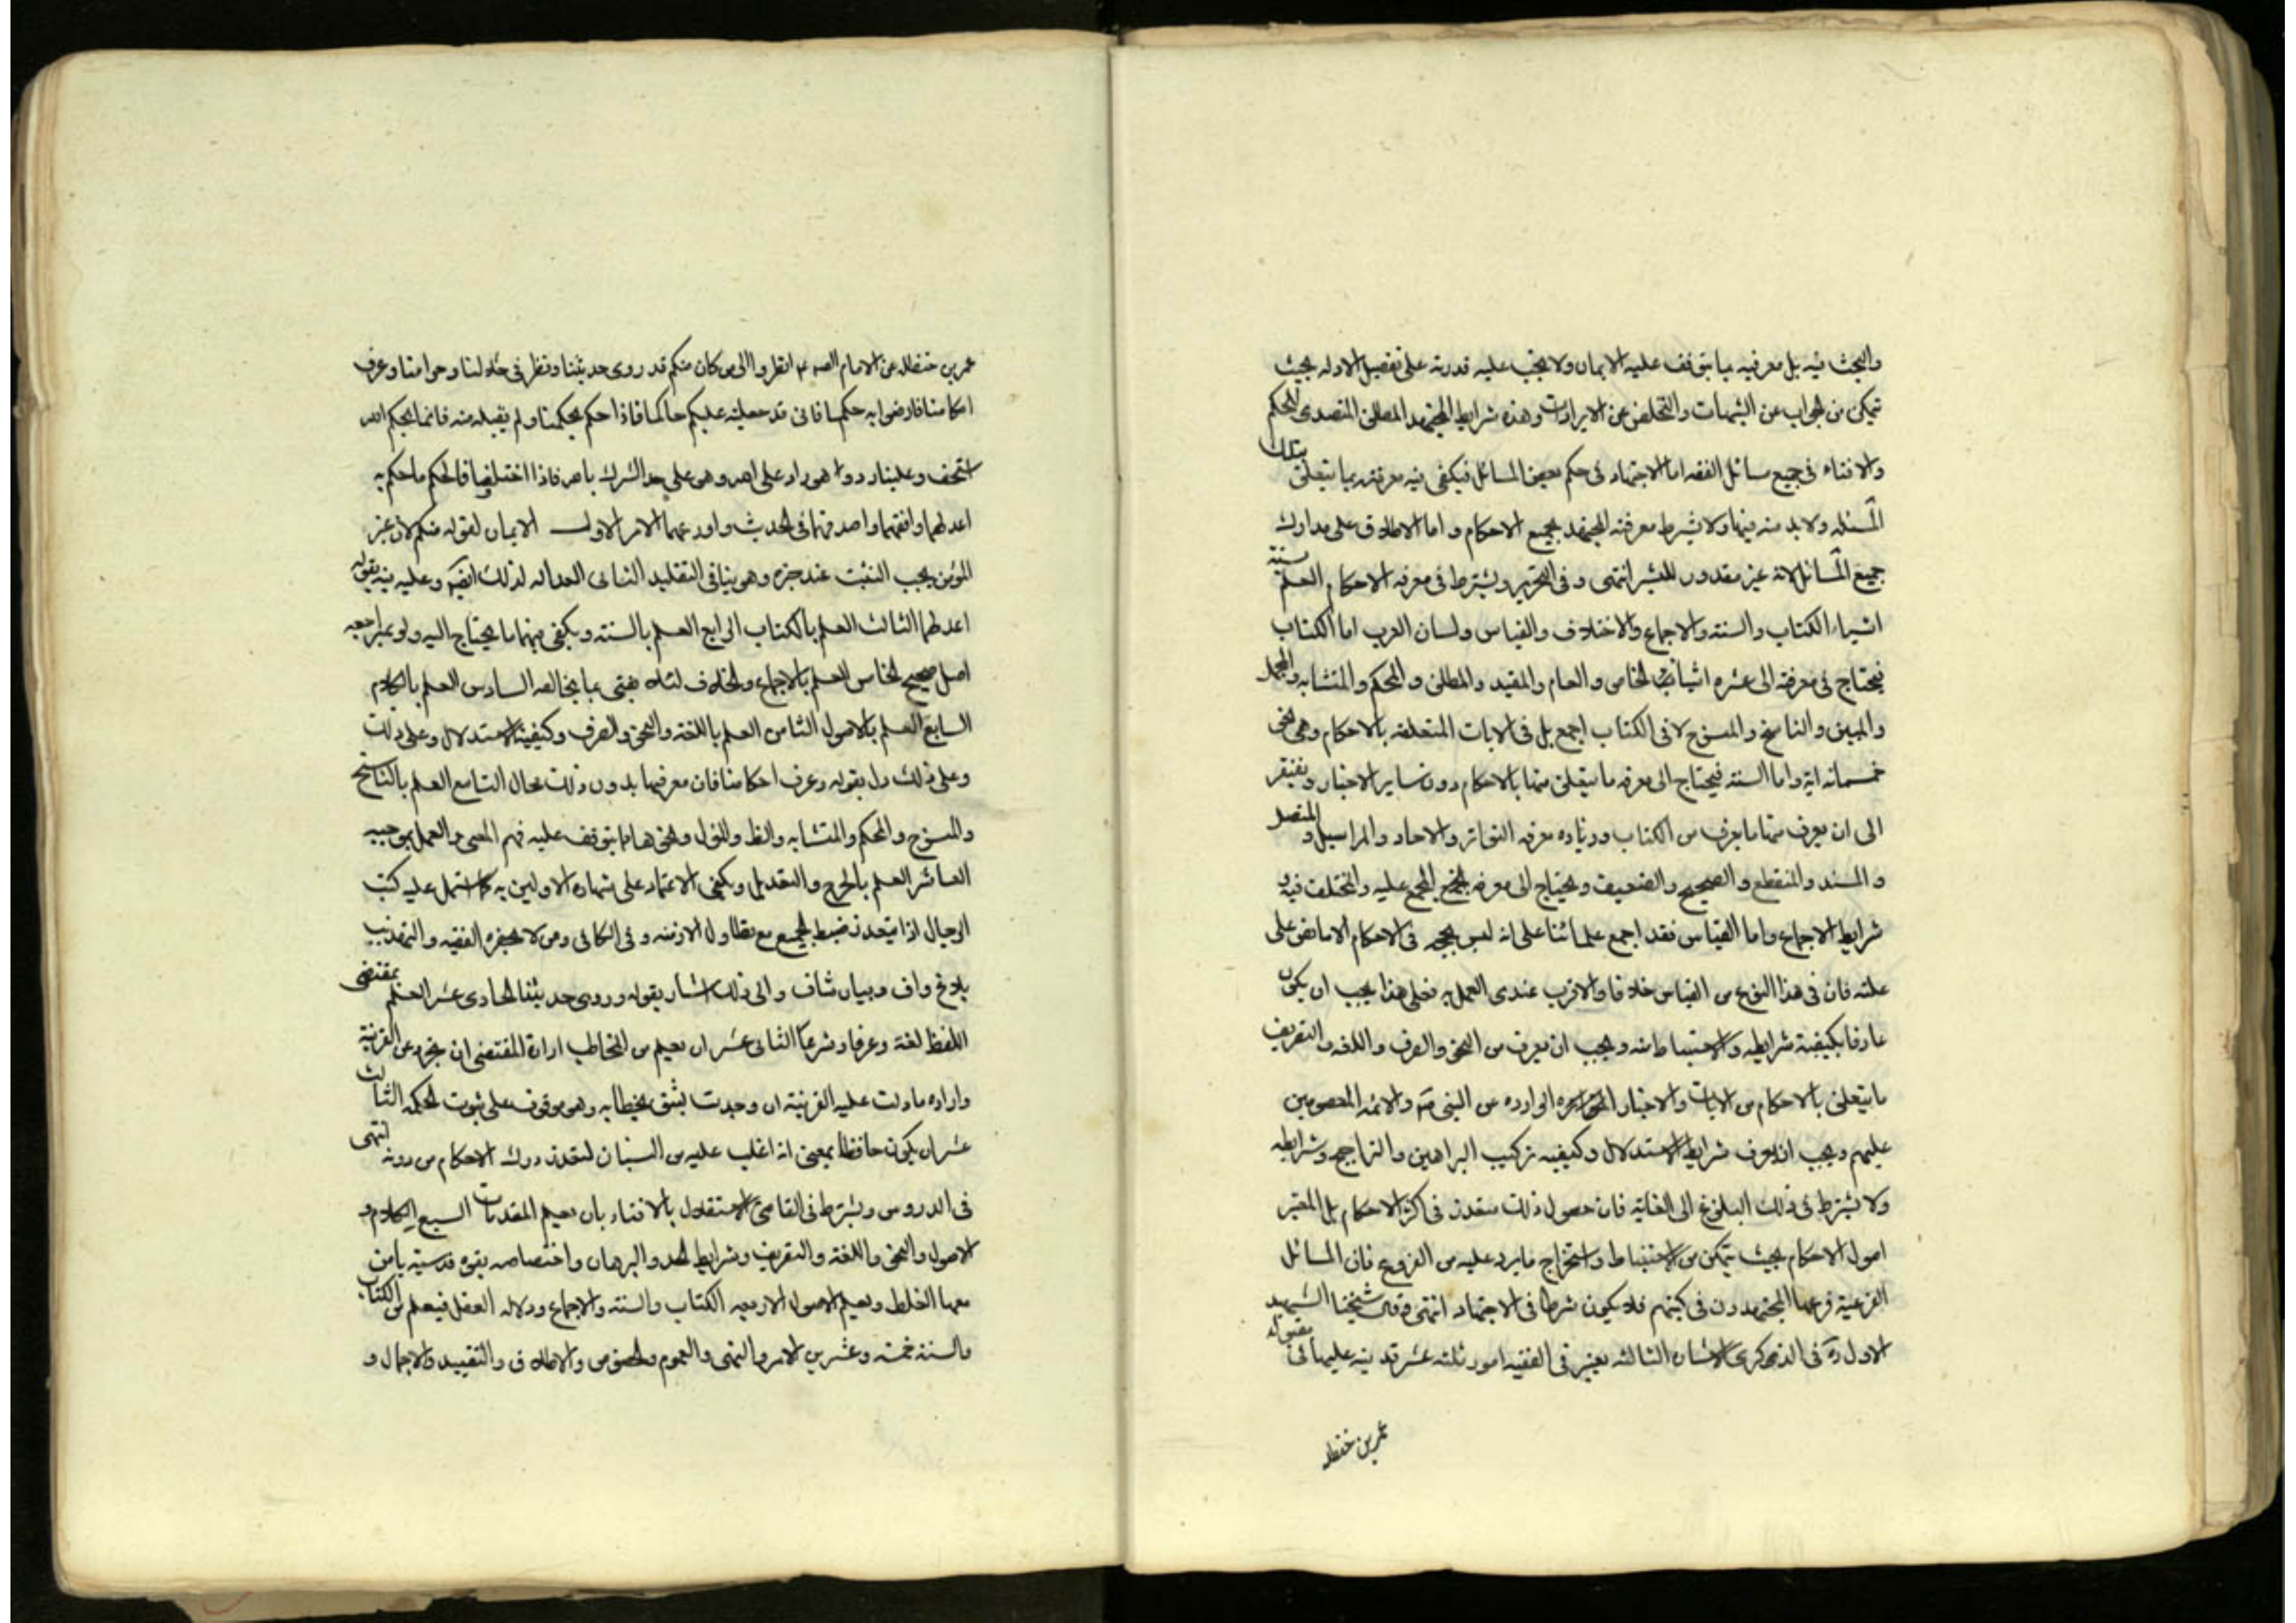 والبحث فيه بل معرفيه ما يتوقف عليه الايمان ولا يجب عليه قدرته على تفصيل الادله بحيث
يتمكن من الجواب عن الشبهات والتخلص عن الايرادات وهذه شرايط المجتهد المطلق المتصدى للحكم
والافتاء فى جميع مسائل الفقه اما الاجتهاد فى حكم بعض المسائل فيكفى فيه معرفته بما يتعلق بتلك
المسئله ولا بد منه فيها ولا يشرط معرفة المجتهد بجميع الاحكام واما الاطلاق على مدارك
جميع المسائل لانه غير مقدور للبشر انتهى وفى التحرير ويشترط فى معرفه الاحكام العلم ستة
اشياء الكتاب والسنة والاجماع والاختلاف والقياس ولسان العرب اما الكتاب
فيحتاج فى معرفته الى عشره اشياء الخاص والعام والمقيد والمطلق والمحكم والمتشابه والمجمل
والمبين والناسخ والمنسوخ لا فى الكتاب اجمع بل فى الايات المتعلقه بالاحكام وهى نحو
خمسمائه اية واما السنة فيحتاج الى معرفه ما يتعلق منها بالاحكام دون ساير الاخبار ويفتقر
الى ان يعرف منها ما يعرف من الكتاب وزياده معرفه التواتر والاحاد والمراسيل والمتصل
والمسند والمنقطع والصحيح والضعيف ويحتاج الى معرفه المجمع عليه والمختلف فيه و
شرايط الاجماع واما القياس فقد اجمع علمائنا على انه ليس بحجه فى الاحكام الا ما نص على
علته فان فى هذا النوع من القياس خلافا والاقرب عندى العمل به فعلى هذا يجب ان يكون
عارفا بكيفية شرايطه والاستنباط منه ويجب ان يعرف من النحو والصرف واللغه والتصريف
ما يتعلق بالاحكام من الايات والاخبار المتواتره الوارده من النبى ص والائمه المعصومين
عليهم ويجب ان يعرف شرايط الاستدلال وكيفيه تركيب البراهين والتراجيح وشرايطه
ولا يشترط فى ذلك البلوغ الى الغاية فان حصول ذلك متعذر فى اكثر الاحكام بل المعتبر
اصول الاحكام بحيث يتمكن من الاستنباط واستخراج ما يرد عليه من الفروع فان المسائل
الفرعية فرعها المجتهدون فى كتبهم فلا يكون شرطا فى الاجتهاد انتهى وقال شيخنا الشهيد
الاول ره فى الذكرى الاشارة الثالثه يعتبر فى الفقيه امور ثلثه عشر قد نبه عليها فى مقبولة
عمر بن حنظله
عمر بن حنظله عن الامام الصه ع انظروا الى من كان منكم قد روى حديثنا ونظر فى حلالنا وحرامنا وعرف
احكامنا فارضوا به حكما فانى قد جعلته عليكم حاكما فاذا حكم بحكمنا ولم يقبله منه فانما بحكم الله
استخف وعلينا رد وا هو راد على الله وهو على حد الشرك بالله فاذا اختلفا فالحكم ما حكم به
اعدلهما وافقههما واصدقهما فى الحديث واورعهما الامر الاول الايمان لقوله منكم لان غير
المؤمن يجب التثبت عند خبره وهو ينافى التقليد الثانى العداله لذلك ايضا وعليه نبه بقوله
اعدلهما الثالث العلم بالكتاب الرابع العلم بالسنة ويكفى منهما ما يحتاج اليه ولو بمراجعه
اصل صحيح الخامس العلم بالاجماع والخلاف لئلا يفتى بما يخالفه السادس العلم بالكلام
السابع العلم بالاصول الثامن العلم باللغة والنحو والصرف وكيفية الاستدلال وعلى ذلك
وعلى ذلك دل بقوله وعرف احكامنا فان معرفتها بدون ذلك محال التاسع العلم بالناسخ
والمنسوخ والمحكم والمتشابه والظ والمؤول ونحوها مما يتوقف عليه فهم المعنى والعمل بموجبه
العاشر العلم بالجرح والتعديل ويكفى الاعتماد على شهادة الاولين به كما اشتمل عليه كتب
الرجال اذا يتعذر ضبط الجميع مع تطاول الازمنه وفى الكافى ومن لا يحضره الفقيه والتهذيب
بلاغ واف وبيان شاف والى ذلك اشار بقوله وروى حديثنا الحادى عشر العلم بمقتضى
اللفظ لغة وعرفا وشرعا الثانى عشر ان يعلم من المخاطب ارادة المقتضى ان تجرد عن القرينة
واراده ما دلت عليه القرينة ان وجدت ليثق بخطابه وهو موقوف على ثبوت الحكمه الثالث
عشر ان يكون حافظا بمعنى انه اغلب عليه من النسيان لتعذر درك الاحكام من دونه انتهى
فى الدروس ويشترط فى القاضى الاستقلال بالافتاء بان يعلم المقدمات السبع الكلام و
الاصول والنحو واللغة والتصريف وشرايط الحد والبرهان واختصاصه بقوه قدسية يامن
معها الغلط ويعلم الاصول الاربعه الكتاب والسنة والاجماع ودلاله العقل فيعلم من الكتاب
والسنة خمسة وعشرين الامر والنهى والعموم والخصوص والاطلاق والتقييد والاجمال و